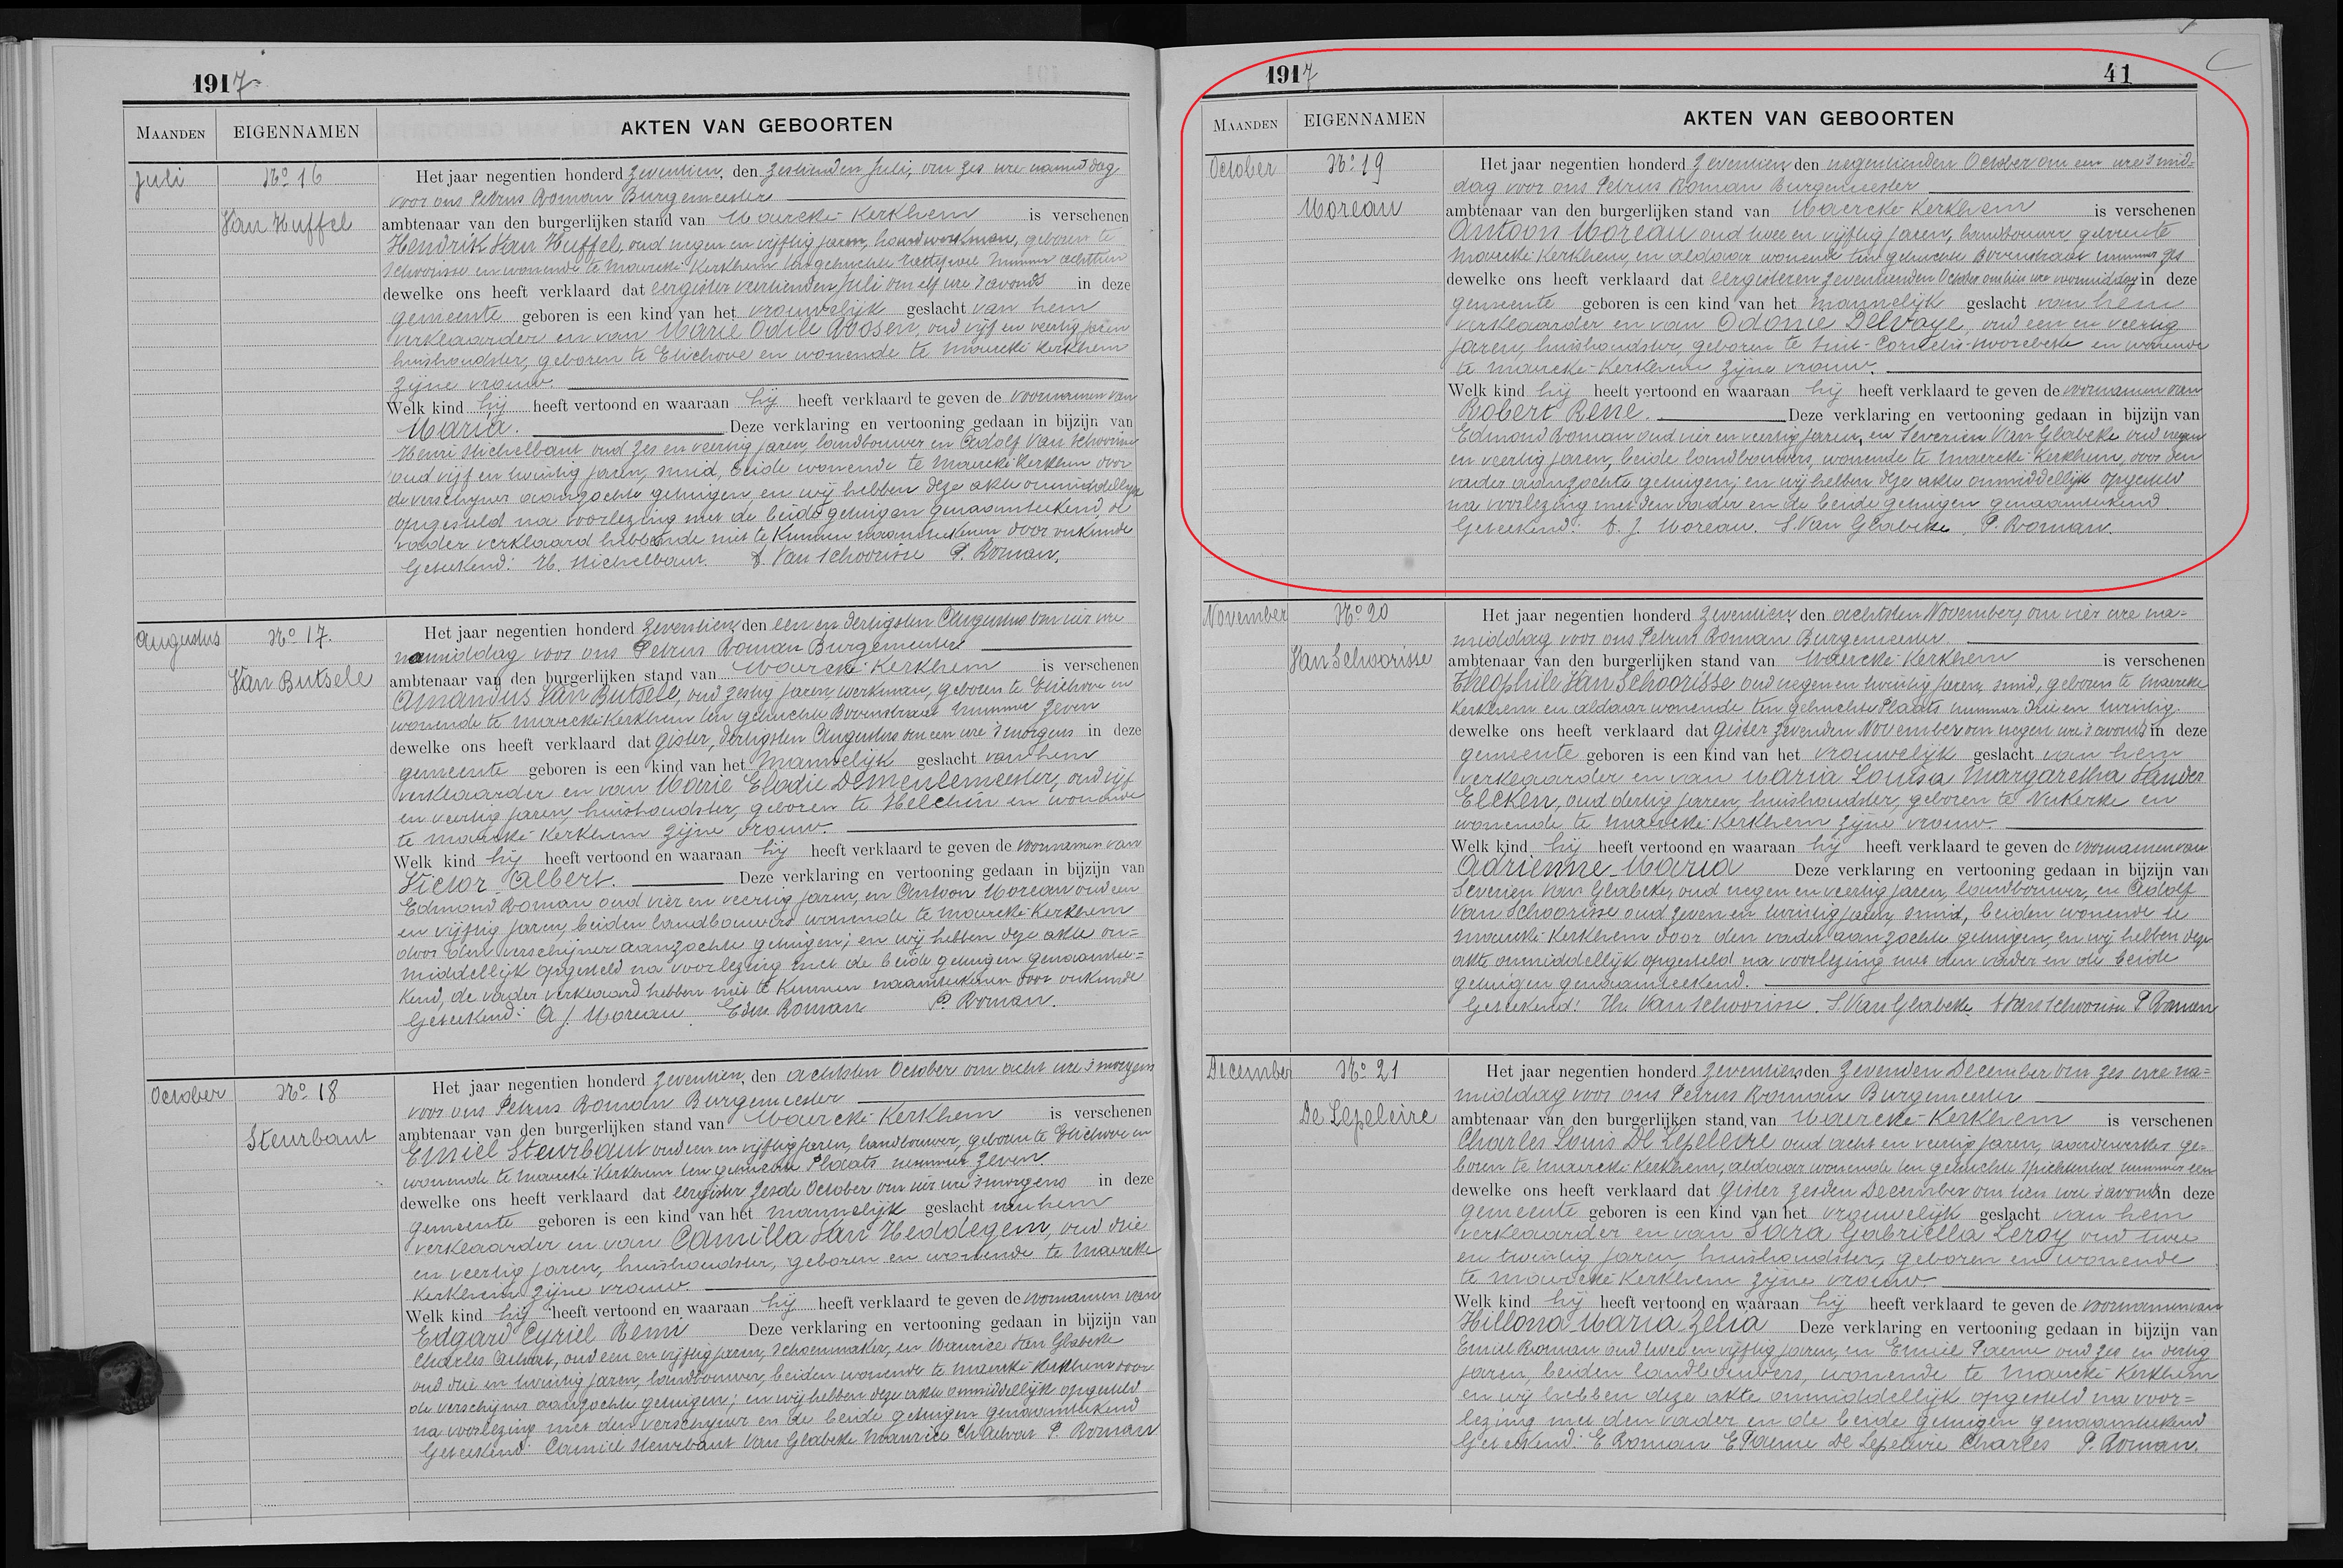 1917
MAANDEN
EIGENNAMEN
AKTEN VAN GEBOORTEN
Juli
No 16
Van Huffel
Het jaar negentien honderd zeventien, den zestienden Juli, om zes ure namiddag
voor ons Petrus Roman Burgemeester
ambtenaar van den burgerlijken stand van Maercke-Kerkhem is verschenen
Hendrik Van Huffel, oud negen en vijftig jaren, handwerkman, geboren te
Schoorisse en wonende te Maercke Kerkhem ten gehuchte nummer achttien
dewelke ons heeft verklaard dat eergister veertienden Juli om elf ure 's avonds in deze
gemeente geboren is een kind van het vrouwelijk geslacht van hem
verklaarder en van Marie Odile Goosen, oud vijf en veertig jaren
huishoudster, geboren te Etichove en wonende te Maercke Kerkhem
zijne vrouw.
Welk kind hij heeft vertoond en waaraan hij heeft verklaard te geven de voornamen van
Maria. Deze verklaring en vertooning gedaan in bijzijn van
Henri Michelbaut oud zes en veertig jaren, landbouwer en Adolf Van Schoorisse
oud vijf en twintig jaren, smid, beide wonende te Maercke Kerkhem door
de verschijner aanzochte getuigen en wij hebben deze akte onmiddellijk
opgesteld na voorlezing met de beide getuigen genaamteekend, de
vader verklaard hebbende niet te kunnen naamteekenen door onkunde
Geteekend: H. Michelbaut. A. Van Schoorisse P. Roman.
Augustus
No 17.
Van Butsele
Het jaar negentien honderd zeventien, den een en dertigsten Augustus om vier ure
namiddag voor ons Petrus Roman Burgemeester
ambtenaar van den burgerlijken stand van Maercke-Kerkhem is verschenen
Amandus Van Butsele, oud zestig jaren werkman, geboren te Etichove en
wonende te Maercke Kerkhem ten gehuchte Bovenstraat nummer zeven
dewelke ons heeft verklaard dat gister, dertigsten Augustus om een ure 's morgens in deze
gemeente geboren is een kind van het mannelijk geslacht van hem
verklaarder en van Marie Elodie Demeulemeester, oud vijf
en veertig jaren, huishoudster, geboren te Helchin en wonende
te Maercke Kerkhem zijne vrouw.
Welk kind hij heeft vertoond en waaraan hij heeft verklaard te geven de voornamen van
Victor Albert. Deze verklaring en vertooning gedaan in bijzijn van
Edmond Roman oud vier en veertig jaren, en Antoon Moreau oud een
en vijftig jaren, beiden landbouwers wonende te Maercke-Kerkhem
door den verschijner aanzochte getuigen; en wij hebben deze akte on=
middellijk opgesteld na voorlezing met de beide getuigen genaamtee=
kend, de vader verklaard hebben niet te kunnen naamteekenen door onkunde
Geteekend: A J. Moreau Edm Roman P. Roman.
October
No 18
Steurbaut
Het jaar negentien honderd zeventien, den achtsten October om acht ure 's morgens
voor ons Petrus Roman Burgemeester
ambtenaar van den burgerlijken stand van Maercke Kerkhem is verschenen
Emiel Steurbaut oud een en vijftig jaren, landbouwer, geboren te Etichove en
wonende te Maercke Kerkhem ten gehuchte Plaats nummer zeven.
dewelke ons heeft verklaard dat eergister zesde October om vier ure 's morgens in deze
gemeente geboren is een kind van het mannelijk geslacht van hem
verklaarder en van Camilla Van Heddegem, oud drie
en veertig jaren, huishoudster, geboren en wonende te Maercke
Kerkhem zijne vrouw.
Welk kind hij heeft vertoond en waaraan hij heeft verklaard te geven de voornamen van
Edgard Cyriel Remi Deze verklaring en vertooning gedaan in bijzijn van
Charles oud een en vijftig jaren, schoenmaker, en Maurice Van Glabeke
oud drie en twintig jaren, landbouwer, beiden wonende te Maercke Kerkhem door
de verschijner aanzochte getuigen; en wij hebben deze akte onmiddellijk opgesteld
na voorlezing met den verschijner en de beide getuigen genaamteekend
Geteekend: Camiel Steurbaut Van Glabeke Maurice Ch P. Roman
1917
41
MAANDEN
EIGENNAMEN
AKTEN VAN GEBOORTEN
October
No 19
Moreau
Het jaar negentien honderd zeventien, den negentienden October om een ure 's mid=
dag voor ons Petrus Roman Burgemeester
ambtenaar van den burgerlijken stand van Maercke Kerkhem is verschenen
Antoon Moreau oud twee en vijftig jaren, landbouwer geboren te
Maercke Kerkhem, en aldaar wonende ten gehuchte Bovenstraat nummer zes
dewelke ons heeft verklaard dat eergisteren zeventienden October om tien ure voormiddag in deze
gemeente geboren is een kind van het mannelijk geslacht van hem
verklaarder en van Odonie Delvaye, oud een en veertig
jaren, huishoudster, geboren te Sint-Cornelis-Hoorebeke en wonende
te Maercke-Kerkhem zijne vrouw.
Welk kind hij heeft vertoond en waaraan hij heeft verklaard te geven de voornamen van
Robert René. Deze verklaring en vertooning gedaan in bijzijn van
Edmond Roman oud vier en veertig jaren, en Severien Van Glabeke oud negen
en veertig jaren, beide landbouwers, wonende te Maercke Kerkhem, door den
vader aanzochte getuigen; en wij hebben deze akte onmiddellijk opgesteld
na voorlezing met den vader en de beide getuigen genaamteekend.
Geteekend: A. J. Moreau. S. Van Glabeke, P. Roman.
November
No 20
Van Schoorisse
Het jaar negentien honderd zeventien, den achtsten November, om vier ure na=
middag voor ons Petrus Roman Burgemeester.
ambtenaar van den burgerlijken stand van Maercke-Kerkhem is verschenen
Theophile Van Schoorisse oud negen en twintig jaren, smid, geboren te Maercke
Kerkhem en aldaar wonende ten gehuchte Plaats nummer drie en twintig.
dewelke ons heeft verklaard dat gister zevenden November om negen ure 's avonds in deze
gemeente geboren is een kind van het vrouwelijk geslacht van hem
verklaarder en van Maria Louisa Margaretha Vander
Elcken, oud dertig jaren, huishoudster, geboren te Nukerke en
wonende te Maercke Kerkhem zijne vrouw.
Welk kind hij heeft vertoond en waaraan hij heeft verklaard te geven de voornamen van
Adrienne Maria Deze verklaring en vertooning gedaan in bijzijn van
Severien Van Glabeke, oud negen en veertig jaren, landbouwer, en Adolf
Van Schoorisse oud zeven en twintig jaren, smid, beiden wonende te
Maercke Kerkhem door den vader aanzochte getuigen, en wij hebben deze
akte onmiddellijk opgesteld na voorlezing met den vader en de beide
getuigen genaamteekend.
Geteekend: Th. Van Schoorisse. S. Van Glabeke. A Van Schoorisse P Roman
December
No 21
De Lepeleire
Het jaar negentien honderd zeventien, den zevenden December om zes ure na=
middag voor ons Petrus Roman Burgemeester
ambtenaar van den burgerlijken stand, van Maercke-Kerkhem is verschenen
Charles Louis De Lepeleire oud acht en veertig jaren, aardewerker ge=
boren te Maercke Kerkhem, aldaar wonende ten gehuchte nummer een
dewelke ons heeft verklaard dat gister zesden December om tien ure 's avonds in deze
gemeente geboren is een kind van het vrouwelijk geslacht van hem
verklaarder en van Sara Gabriella Leroy oud twee
en twintig jaren, huishoudster, geboren en wonende
te Maercke Kerkhem zijne vrouw.
Welk kind hij heeft vertoond en waaraan hij heeft verklaard te geven de voornamen van
Hillona Maria Zelia Deze verklaring en vertooning gedaan in bijzijn van
Emiel Roman oud twee en vijftig jaren, en Emiel Paeme oud zes en dertig
jaren, beiden landbouwers, wonende te Maercke Kerkhem
en wij hebben deze akte onmiddellijk opgesteld na voor=
lezing met den vader en de beide getuigen genaamteekend
Geteekend: E Roman E Paeme De Lepeleire Charles P. Roman.